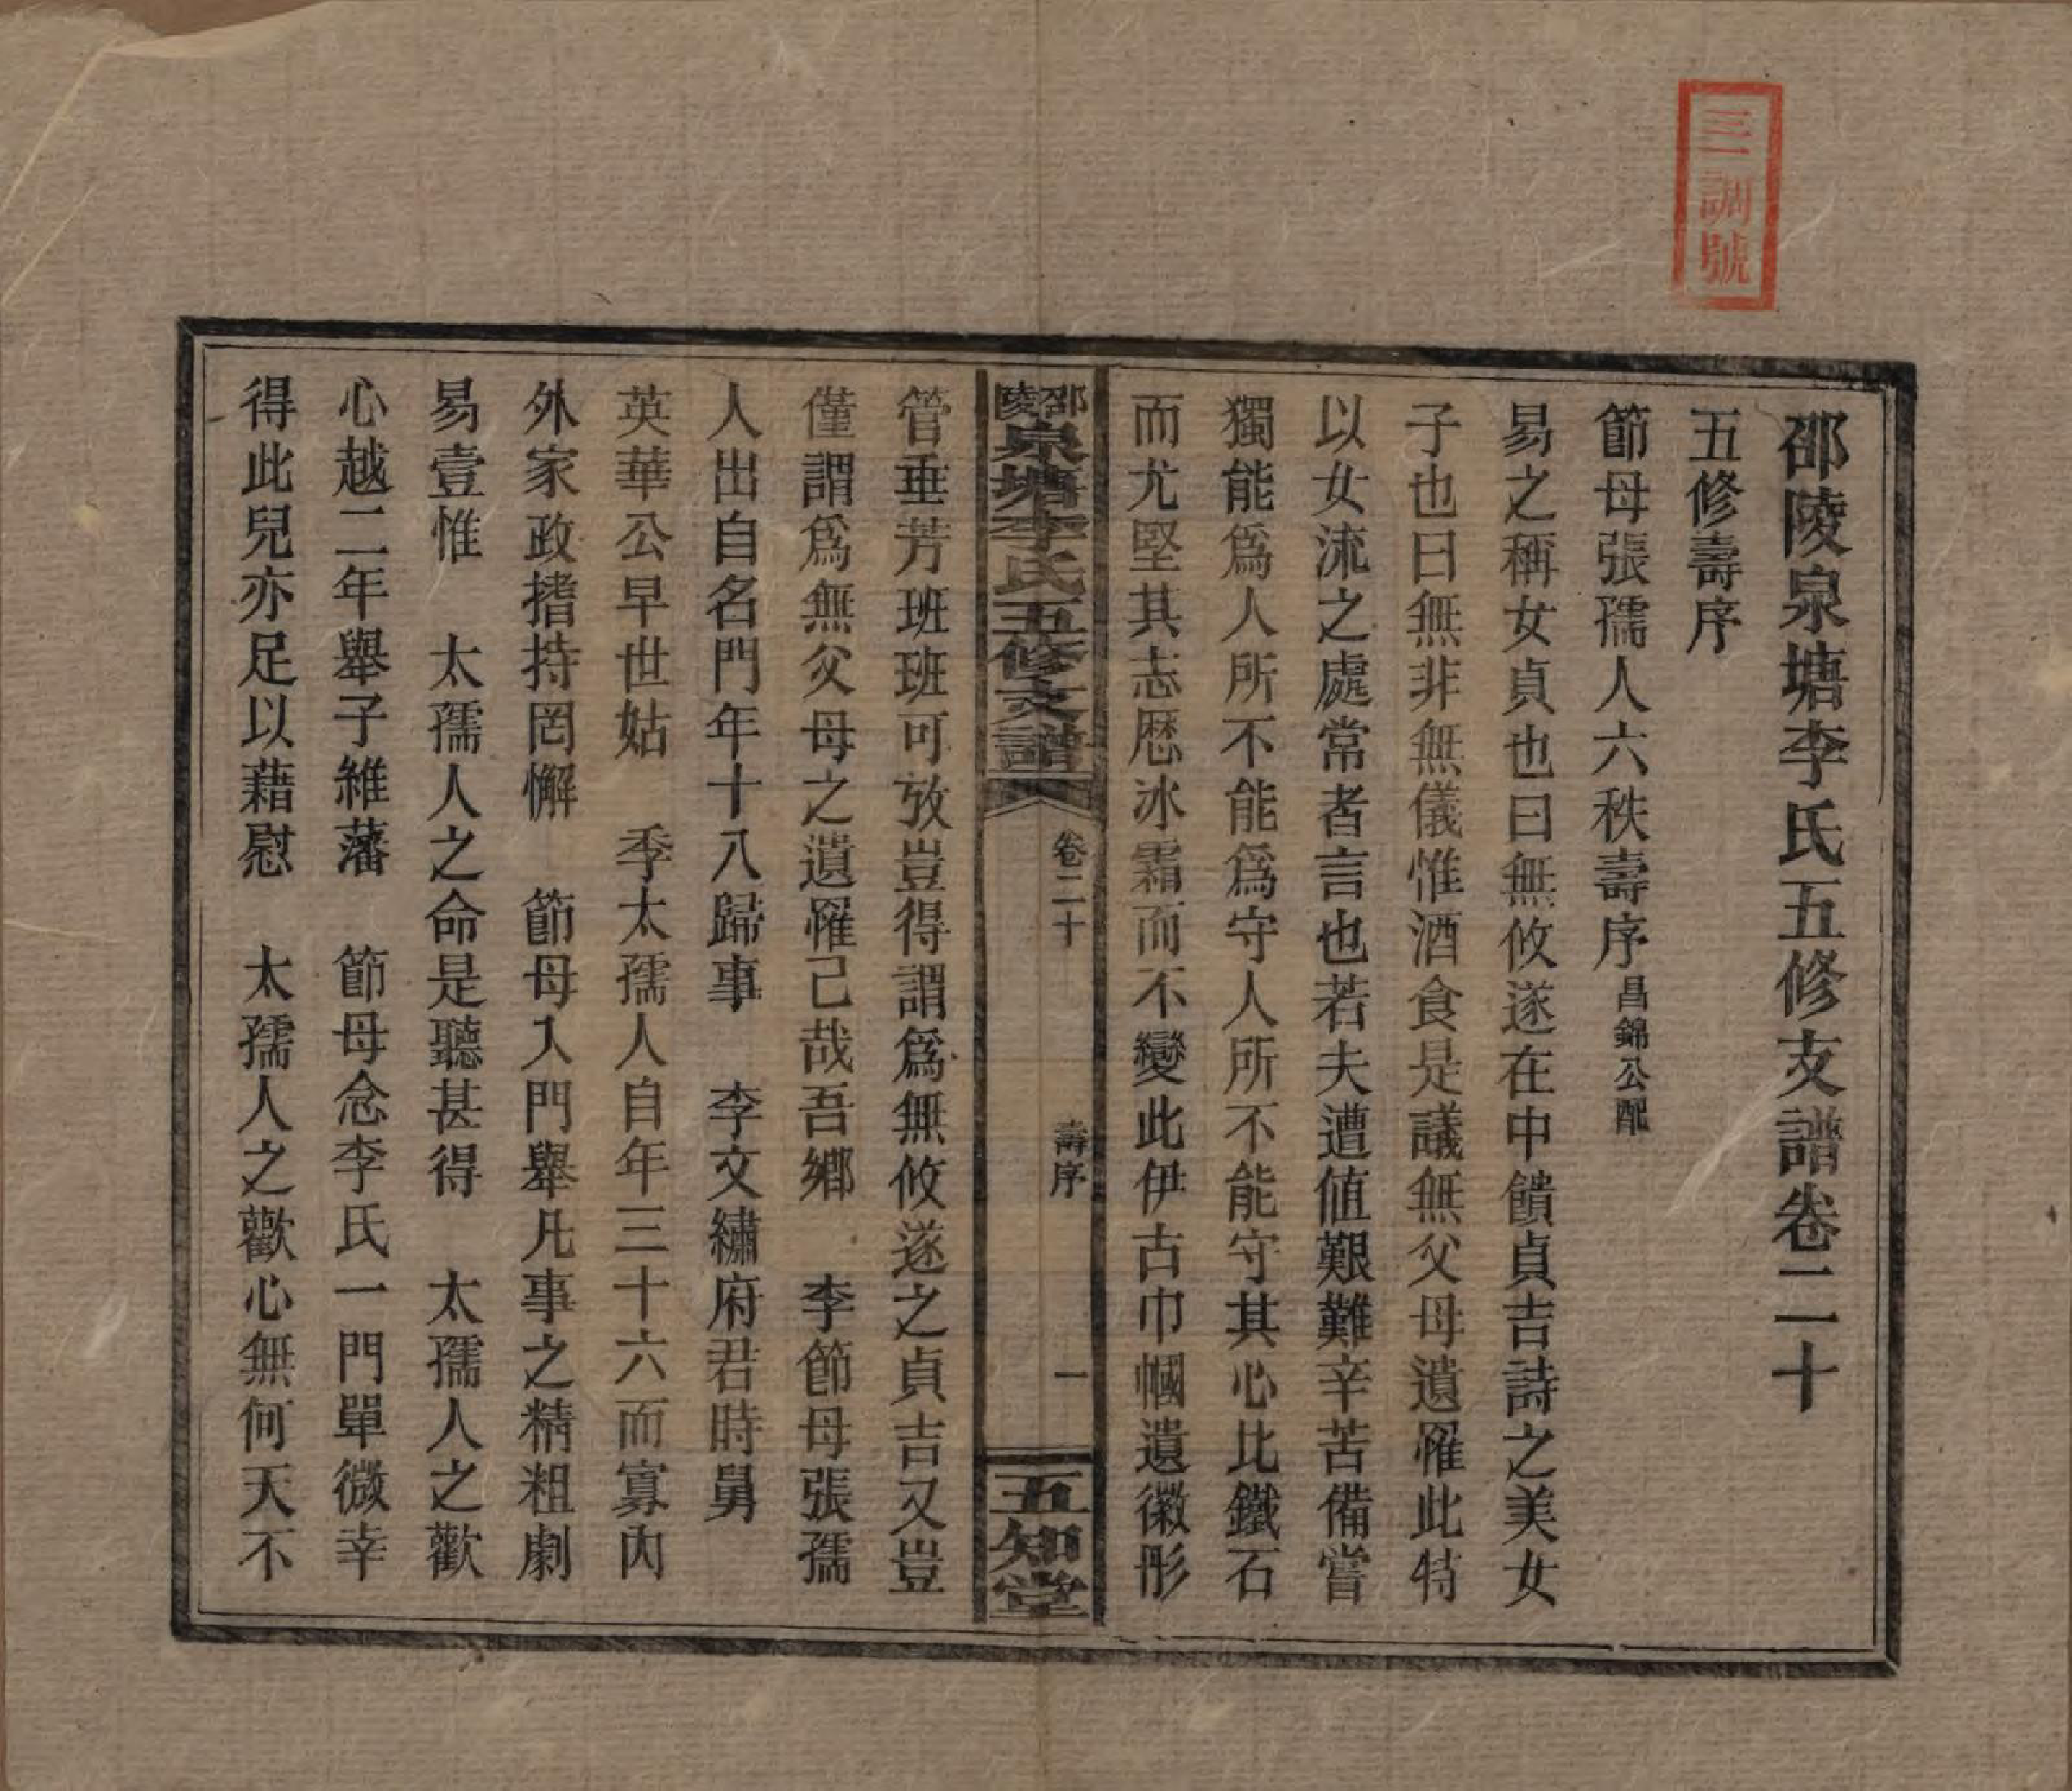 三一調號
邵陵泉塘李氏五修支譜卷二十
五修壽序
節母張孺人六秩壽序昌錦公配
易之稱女貞也曰無攸遂在中饋貞吉詩之美女
子也曰無非無儀惟酒食是議無父母遺罹此特
以女流之處常者言也若夫遭値艱難辛苦備嘗
獨能爲人所不能爲守人所不能守其心比鐵石
而尤堅其志歷冰霜而不變此伊古巾幗遺徽彤
邵陵泉塘李氏五修支譜
卷二十
壽序
一
五知堂
管垂芳班班可攷豈得謂爲無攸遂之貞吉又豈
僅謂爲無父母之遺罹已哉吾鄉 李節母張孺
人出自名門年十八歸事 李文繡府君時舅
英華公早世姑 季太孺人自年三十六而寡內
外家政揩持罔懈 節母入門舉凡事之精粗劇
易壹惟 太孺人之命是聽甚得 太孺人之歡
心越二年舉子維藩 節母念李氏一門單微幸
得此兒亦足以藉慰 太孺人之歡心無何天不